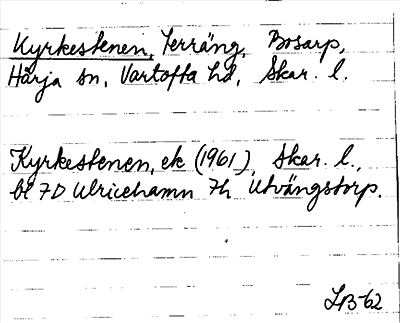 Kyrkestenen, Terräng, Bosarp,
Härja sn, Vartofta hd, Skar. l.
Kyrkestenen, ek (1961), Skar. l.,
bl 7D Ulricehamn 7h Utvängstorp.
LB-62